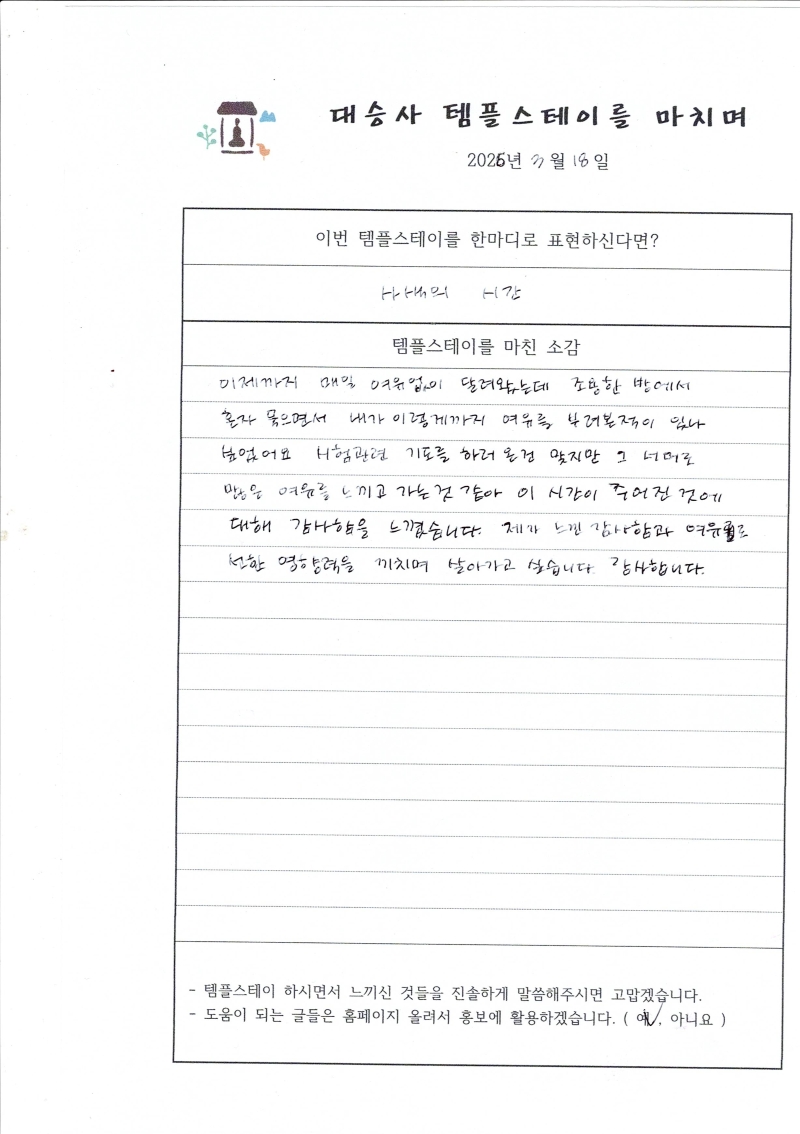 대승사 템플스테이를 마치며
2025년 3월 18일
이번 템플스테이를 한마디로 표현하신다면?
사색의 시간
템플스테이를 마친 소감
이제까지 매일 여유없이 달려왔는데 조용한 방에서
혼자 묵으면서 내가 이렇게까지 여유를 부려본적이 있나
싶었어요 시험관련 기도를 하러 온건 맞지만 그 너머로
많은 여유를 느끼고 가는것 같아 이 시간이 주어진 것에
대해 감사함을 느꼈습니다. 제가 느낀 감사함과 여유로
선한 영향력을 끼치며 살아가고 싶습니다. 감사합니다.
- 템플스테이 하시면서 느끼신 것들을 진솔하게 말씀해주시면 고맙겠습니다.
- 도움이 되는 글들은 홈페이지 올려서 홍보에 활용하겠습니다. ( 예, 아니요 )